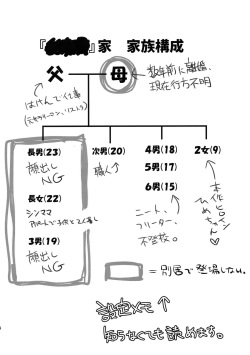 『 』家 家族構成
父
母
数年前に離婚、
現在行方不明
はけんで仕事
長男(23)
顔出し
NG
長女(22)
シンママ
3男(19)
顔出し
NG
次男(20)
職人↑
4男(18)
5男(17)
6男(15)
ニート、
フリーター、
不登校。
2女(9)
本作ヒロイン
ひめちゃん♡
= 別居で登場しない。
設定メモ↑
知らなくても読めます。